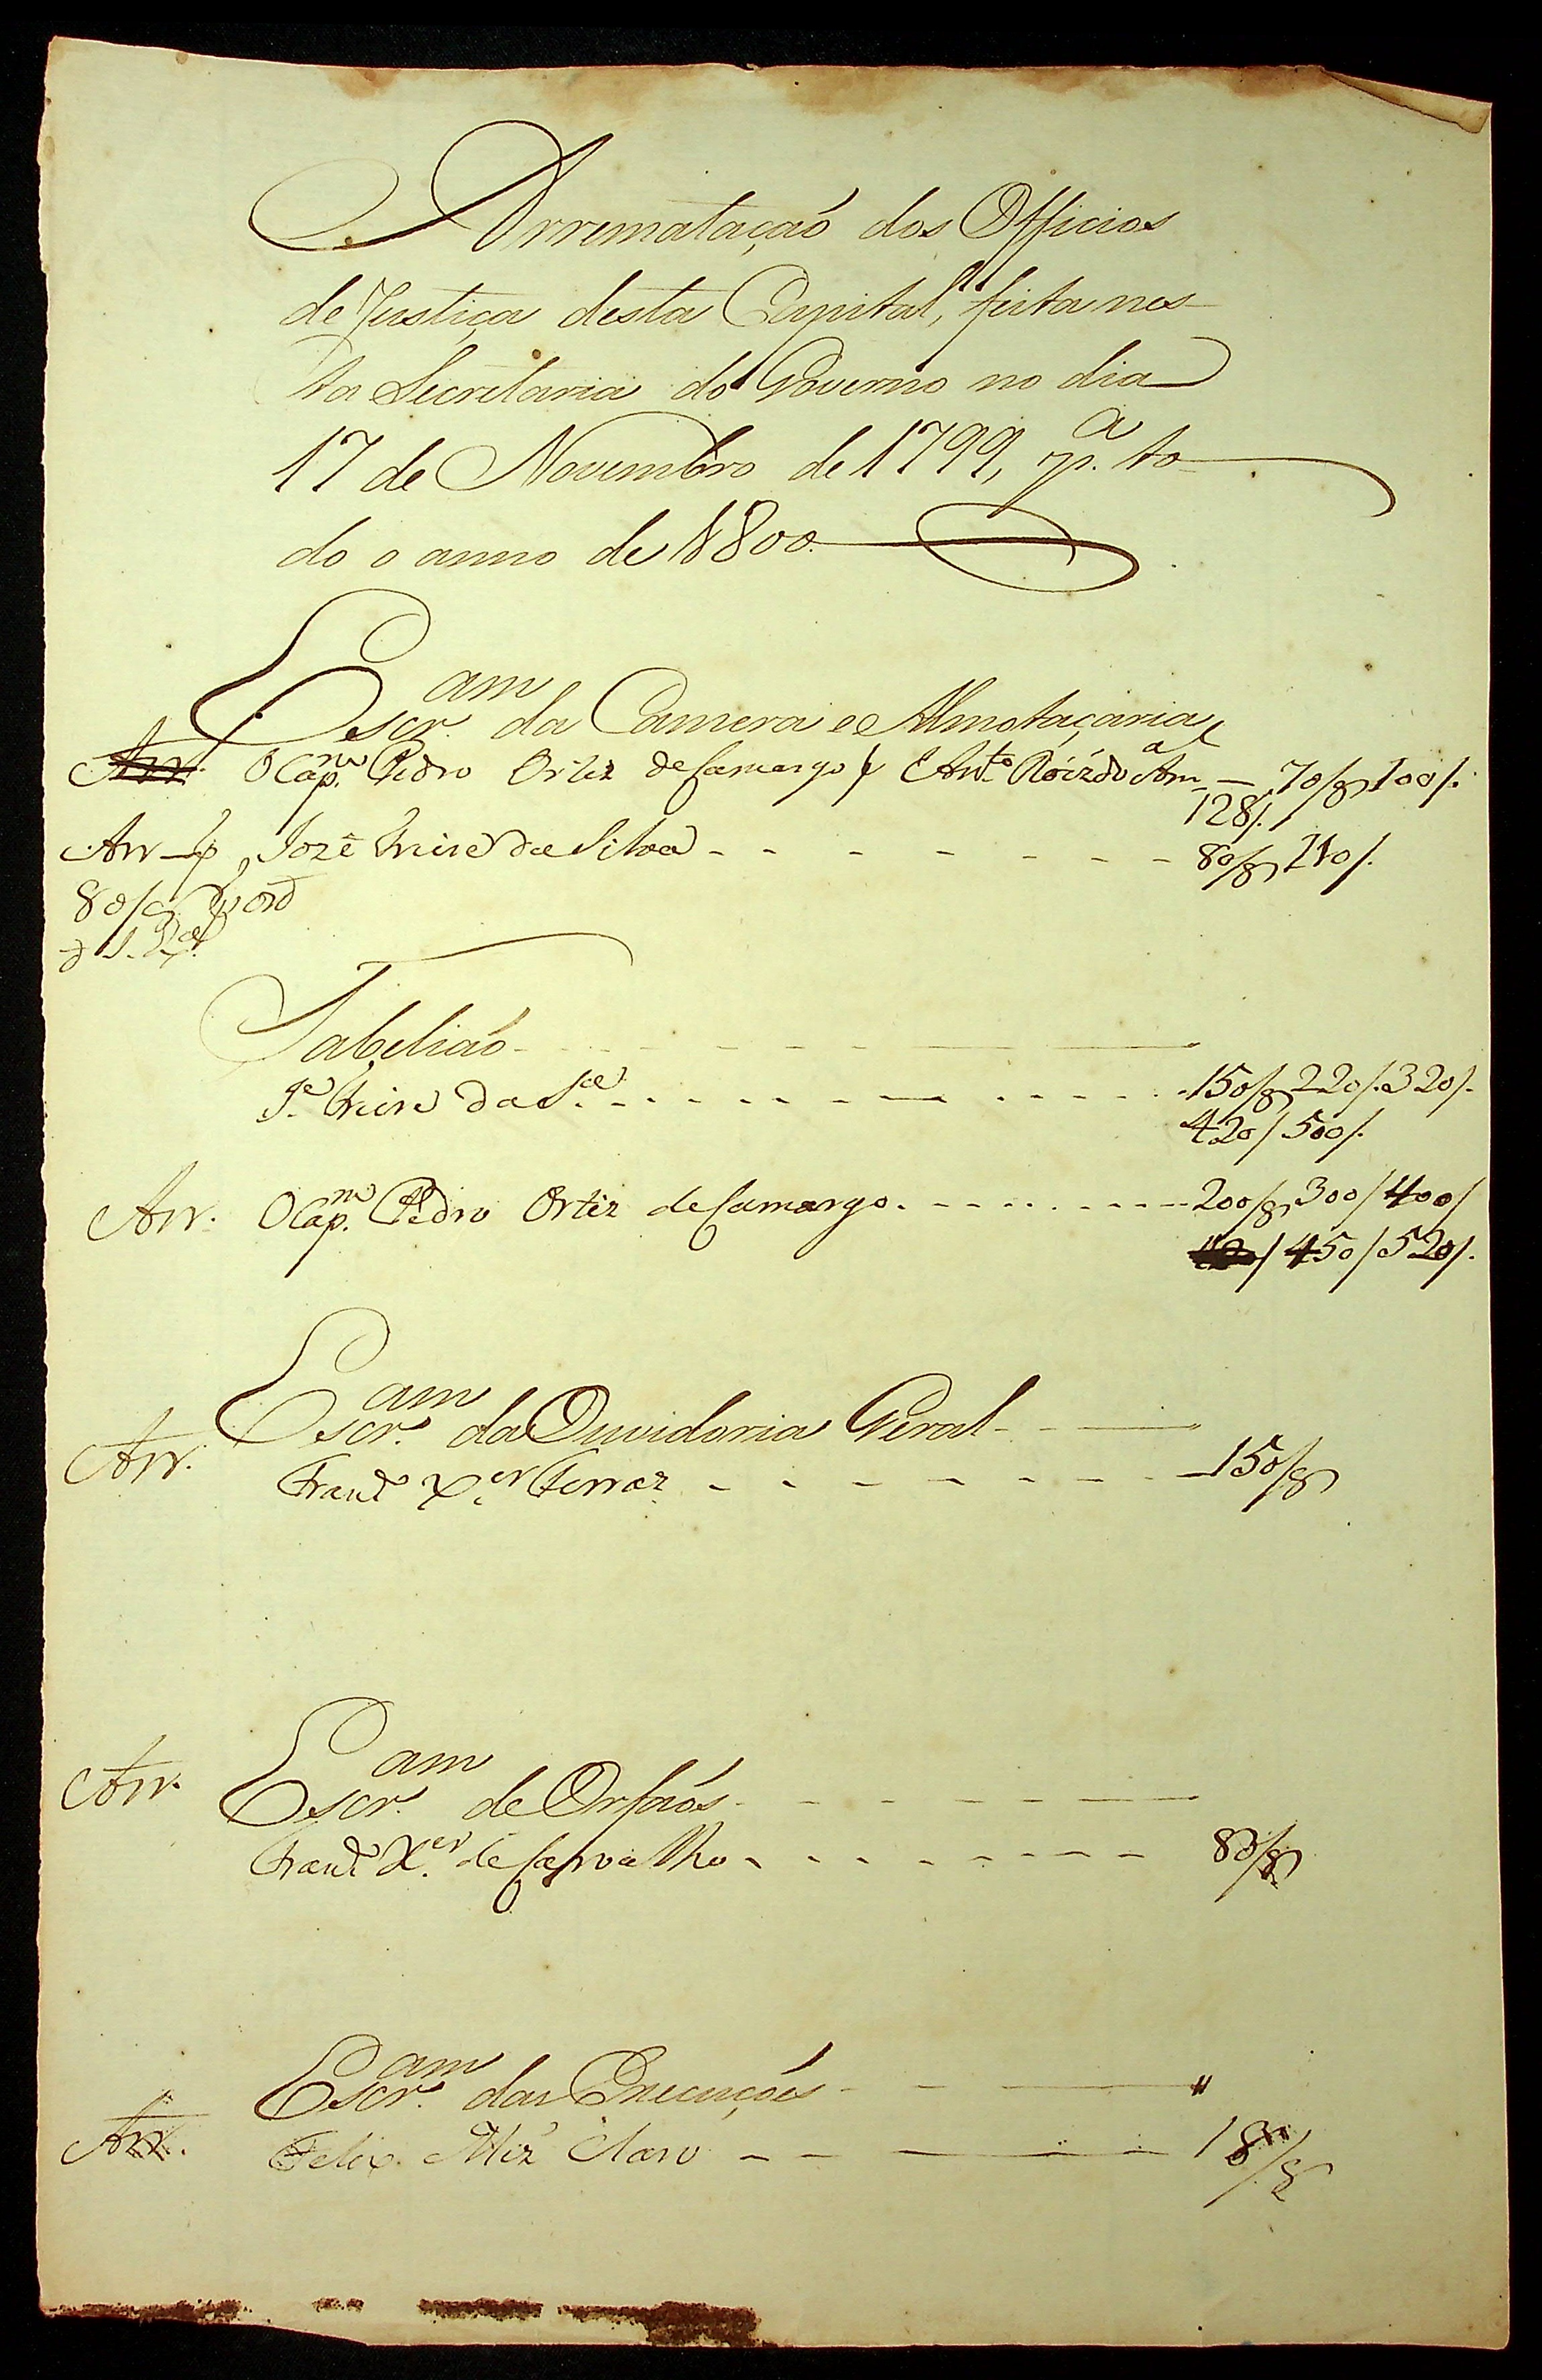 Arrematação dos Officios
de Justiça desta Capital, feita nes-
ta Secretaria do Governo no dia
17 de Novembro de 1799, p.ª to-
do o anno de 1800.
Escr.am da Camera e Almotaçaria
Arr. O Cap.m Pedro Ortiz de Camargo p Ant.to Roiz do Am.a — 70/8 100/.
128/.
Arr p Jozé Freire da Silva - - - - - - - 80/8 210/.
80/8
Tabelião
J.e Freire da S.a - - - - - - - 150/8 220/. 320/.
420/ 500/.
Arr. O Cap.m Pedro Ortiz de Camargo - - - - - - - 200/8 300/ 400/
450/ 520/.
Escr.am da Ouvidoria Geral
Arr. Fran.co X.er Ferraz - - - - - - - 150/8
Arr. Escr.am de Orfaõs
Fran.co X.er de Carvalho - - - - - - - 80/8
Escr.am das Execuções "
Arr. Felix Miz Claro - - - 18/8